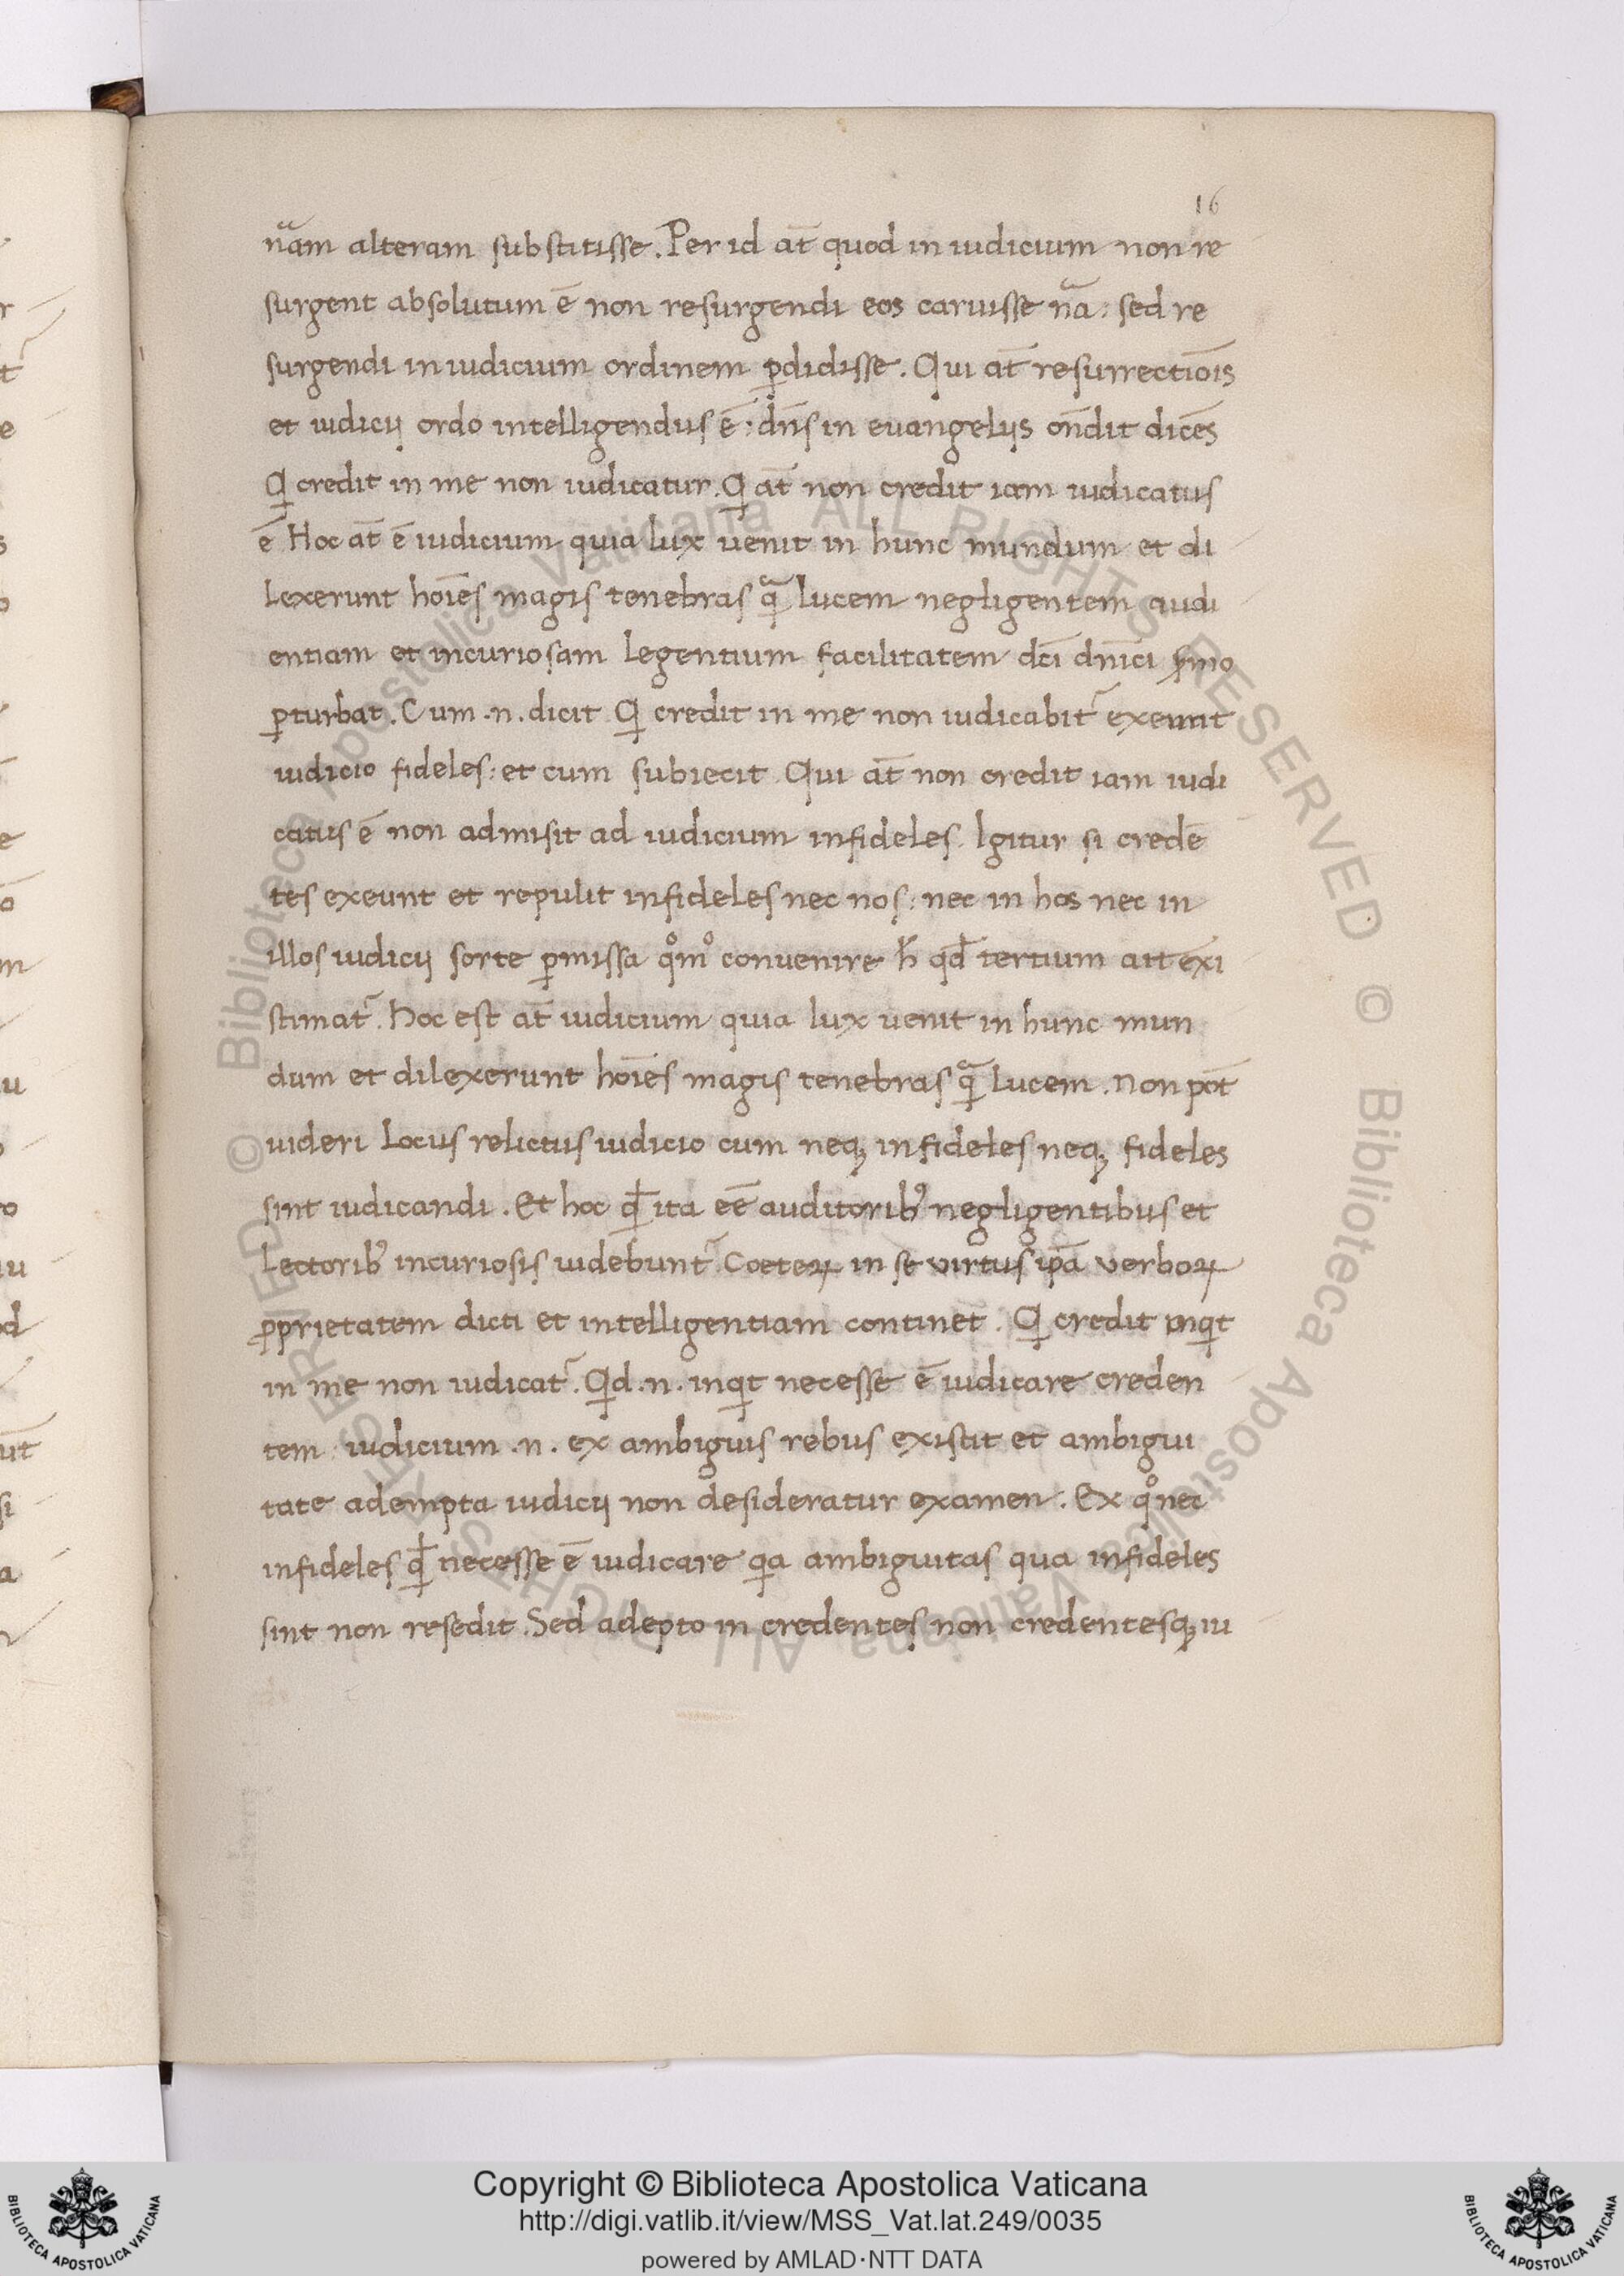 16
nãm alteram substitisse. Per id at̄ quod in iudicium non re
surgent absolutum ē non resurgendi eos caruisse nã: sed re
surgendi in iudicium ordinem ꝑdidisse. Qui at̄ resurrectiōis
et iudicij ordo intelligendus ē: dn̄s in euangelijs on̄dit dicēs
Q̣ credit in me non iudicatur. Q̣ at̄ non credit iam iudicatus
ē Hoc at̄ ē iudicium quia lux uenit in hunc mundum et di
lexerunt hoīes magis tenebras q̃ lucem negligentem audi
entiam et incuriosam legentium facilitatem dc̄i dn̄ici
ꝑturbat. Cum .n. dicit Q̣ credit in me non iudicabit᷑ exeunt
iudicio fideles: et cum subiecit Qui at̄ non credit iam iudi
catus ē non admisit ad iudicium infideles. Igitur si credē
tes exeunt et repulit infideles nec nos: nec in hos nec in
illos iudicij sorte ꝑmissa qͦmͦ conuenire h̄ qd̄ tertium ait exi
stimat᷑. Hoc est at̄ iudicium quia lux uenit in hunc mun
dum et dilexerunt hoīes magis tenebras q̃ lucem. Non pōt
uideri locus relictus iudicio cum neqꝫ infideles neqꝫ fideles
sint iudicandi. Et hoc qd̄ ita eē auditoribꝰ negligentibus et
Lectoribꝰ incuriosis uidebunt᷑. Coeteꝝ in se virtus ip̄a verboꝝ
ꝓprietatem dicti et intelligentiam continet. Q̣ credit inq̣t
in me non iudicat᷑. Q̣d .n. inq̣t necesse ē iudicare creden
tem: iudicium .n. ex ambiguis rebus existit et ambigui
tate adempta iudicij non desideratur examen. Ex qͦ nec
infideles qd̄ necesse ē iudicare q̣a ambiguitas qua infideles
sint non resedit. Sed adepto in credentes non credentesqꝫ iu
Copyright © Biblioteca Apostolica Vaticana
http://digi.vatlib.it/view/MSS_Vat.lat.249/0035
powered by AMLAD·NTT DATA
BIBLIOTECA APOSTOLICA VATICANA
BIBLIOTECA APOSTOLICA VATICANA
© Biblioteca Apostolica Vaticana ALL RIGHTS RESERVED © Biblioteca Apostolica Vaticana ALL RIGHTS RESERVED